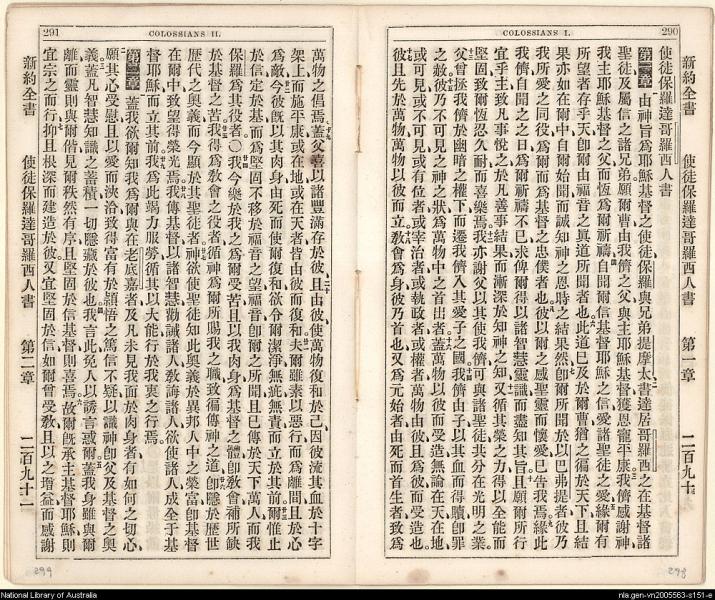 290
COLOSSIANS I.
新約全書 使徒保羅達哥羅西人書 第一章 二百九十
使徒保羅達哥羅西人書
第一章 由神旨爲耶穌基督之使徒保羅與兄弟提摩太書達居哥羅西之在基督諸
聖徒及屬信之諸兄弟願爾曹由我儕之父與主耶穌基督獲恩寵平康我儕感謝神
我主耶穌基督之父而恆爲爾祈禱自聞爾信基督耶穌之信愛諸聖徒之愛緣爾有
所望者存乎天卽爾由福音之眞道所聞者也此道已及於爾曹猶之徧於天下且結
果亦如在爾中自爾始聞而誠知神之恩時之結果然卽爾所聞於以巴弗提者彼乃
我所愛之同役爲爾而爲基督之忠僕者也彼以爾之感聖靈而懷愛已告我焉緣此
我儕自聞之之日爲爾祈禱不已求俾爾得以諸智慧靈識而盡知其旨且願爾所行
宜乎主致凡事悅之於凡善事結果而漸深於知神之知又循其榮之力得以全能而
堅固致爾恆忍久耐而喜樂焉我亦謝父以其使我儕可與諸聖徒共分在光明之業
父曾拯我儕於幽暗之權下而遷我儕入其愛子之國我儕由子以其血而得贖卽罪
之赦彼乃不可見之神之狀爲萬物中之首出者蓋萬物以彼而受造無論在天在地
或可見或不可見或有位者或宰治者或執政者或權者萬物由彼且爲彼而受造也
彼且先於萬物萬物以彼而立敎會爲身彼乃首也又爲元始者由死而首生者致爲
298
291
COLOSSIANS II.
萬物之倡焉蓋父喜以諸豐滿存於彼且由彼使萬物復和於己因彼流其血於十字
架上而施平康或在地或在天者皆由彼而復和夫爾雖素以惡行而爲離間且於心
爲敵今彼旣以其肉身由死而使爾復和欲令爾潔淨無疵無責而立於其前爾惟止
於信定於基而爲堅固不移於福音之望福音卽爾之所聞且已傳於天下萬人而我
保羅爲其役者〇我今樂於我之爲爾受苦且以我肉身爲基督之體卽敎會補所缺
於基督之苦我得爲敎會之役者循神爲爾所賜我之職致徧傳神之道卽隱於歷世
歷代之奧義而今顯於其聖徒者神欲使聖徒知此奧義於異邦人中之榮富卽基督
在爾中致望得榮光焉我傳基督以諸智慧勸誡諸人敎誨諸人欲使諸人成全于基
督耶穌而立其前我爲此竭力服勞循其以大能行於我衷之行焉
第二章 蓋我欲爾知我爲爾與在老底嘉者及凡未見我面於肉身者有如何之切心
願其心受慰且以愛而浹洽致得富有於頴悟之篤信不疑以識神卽父及基督之奧
義蓋凡智慧知識之蓄積一切隱藏於彼也我言此免人以誘言惑爾蓋我身雖與爾
離而靈則與爾偕見爾秩然有序且堅固於信基督則喜焉故爾旣承主基督耶穌則
宜宗之而行抑且根深而建造於彼又宜堅固於信如爾曾受敎且以之增益而感謝
新約全書 使徒保羅達哥羅西人書 第二章 二百九十一
299
National Library of Australia
nla.gen-vn2005563-s151-e